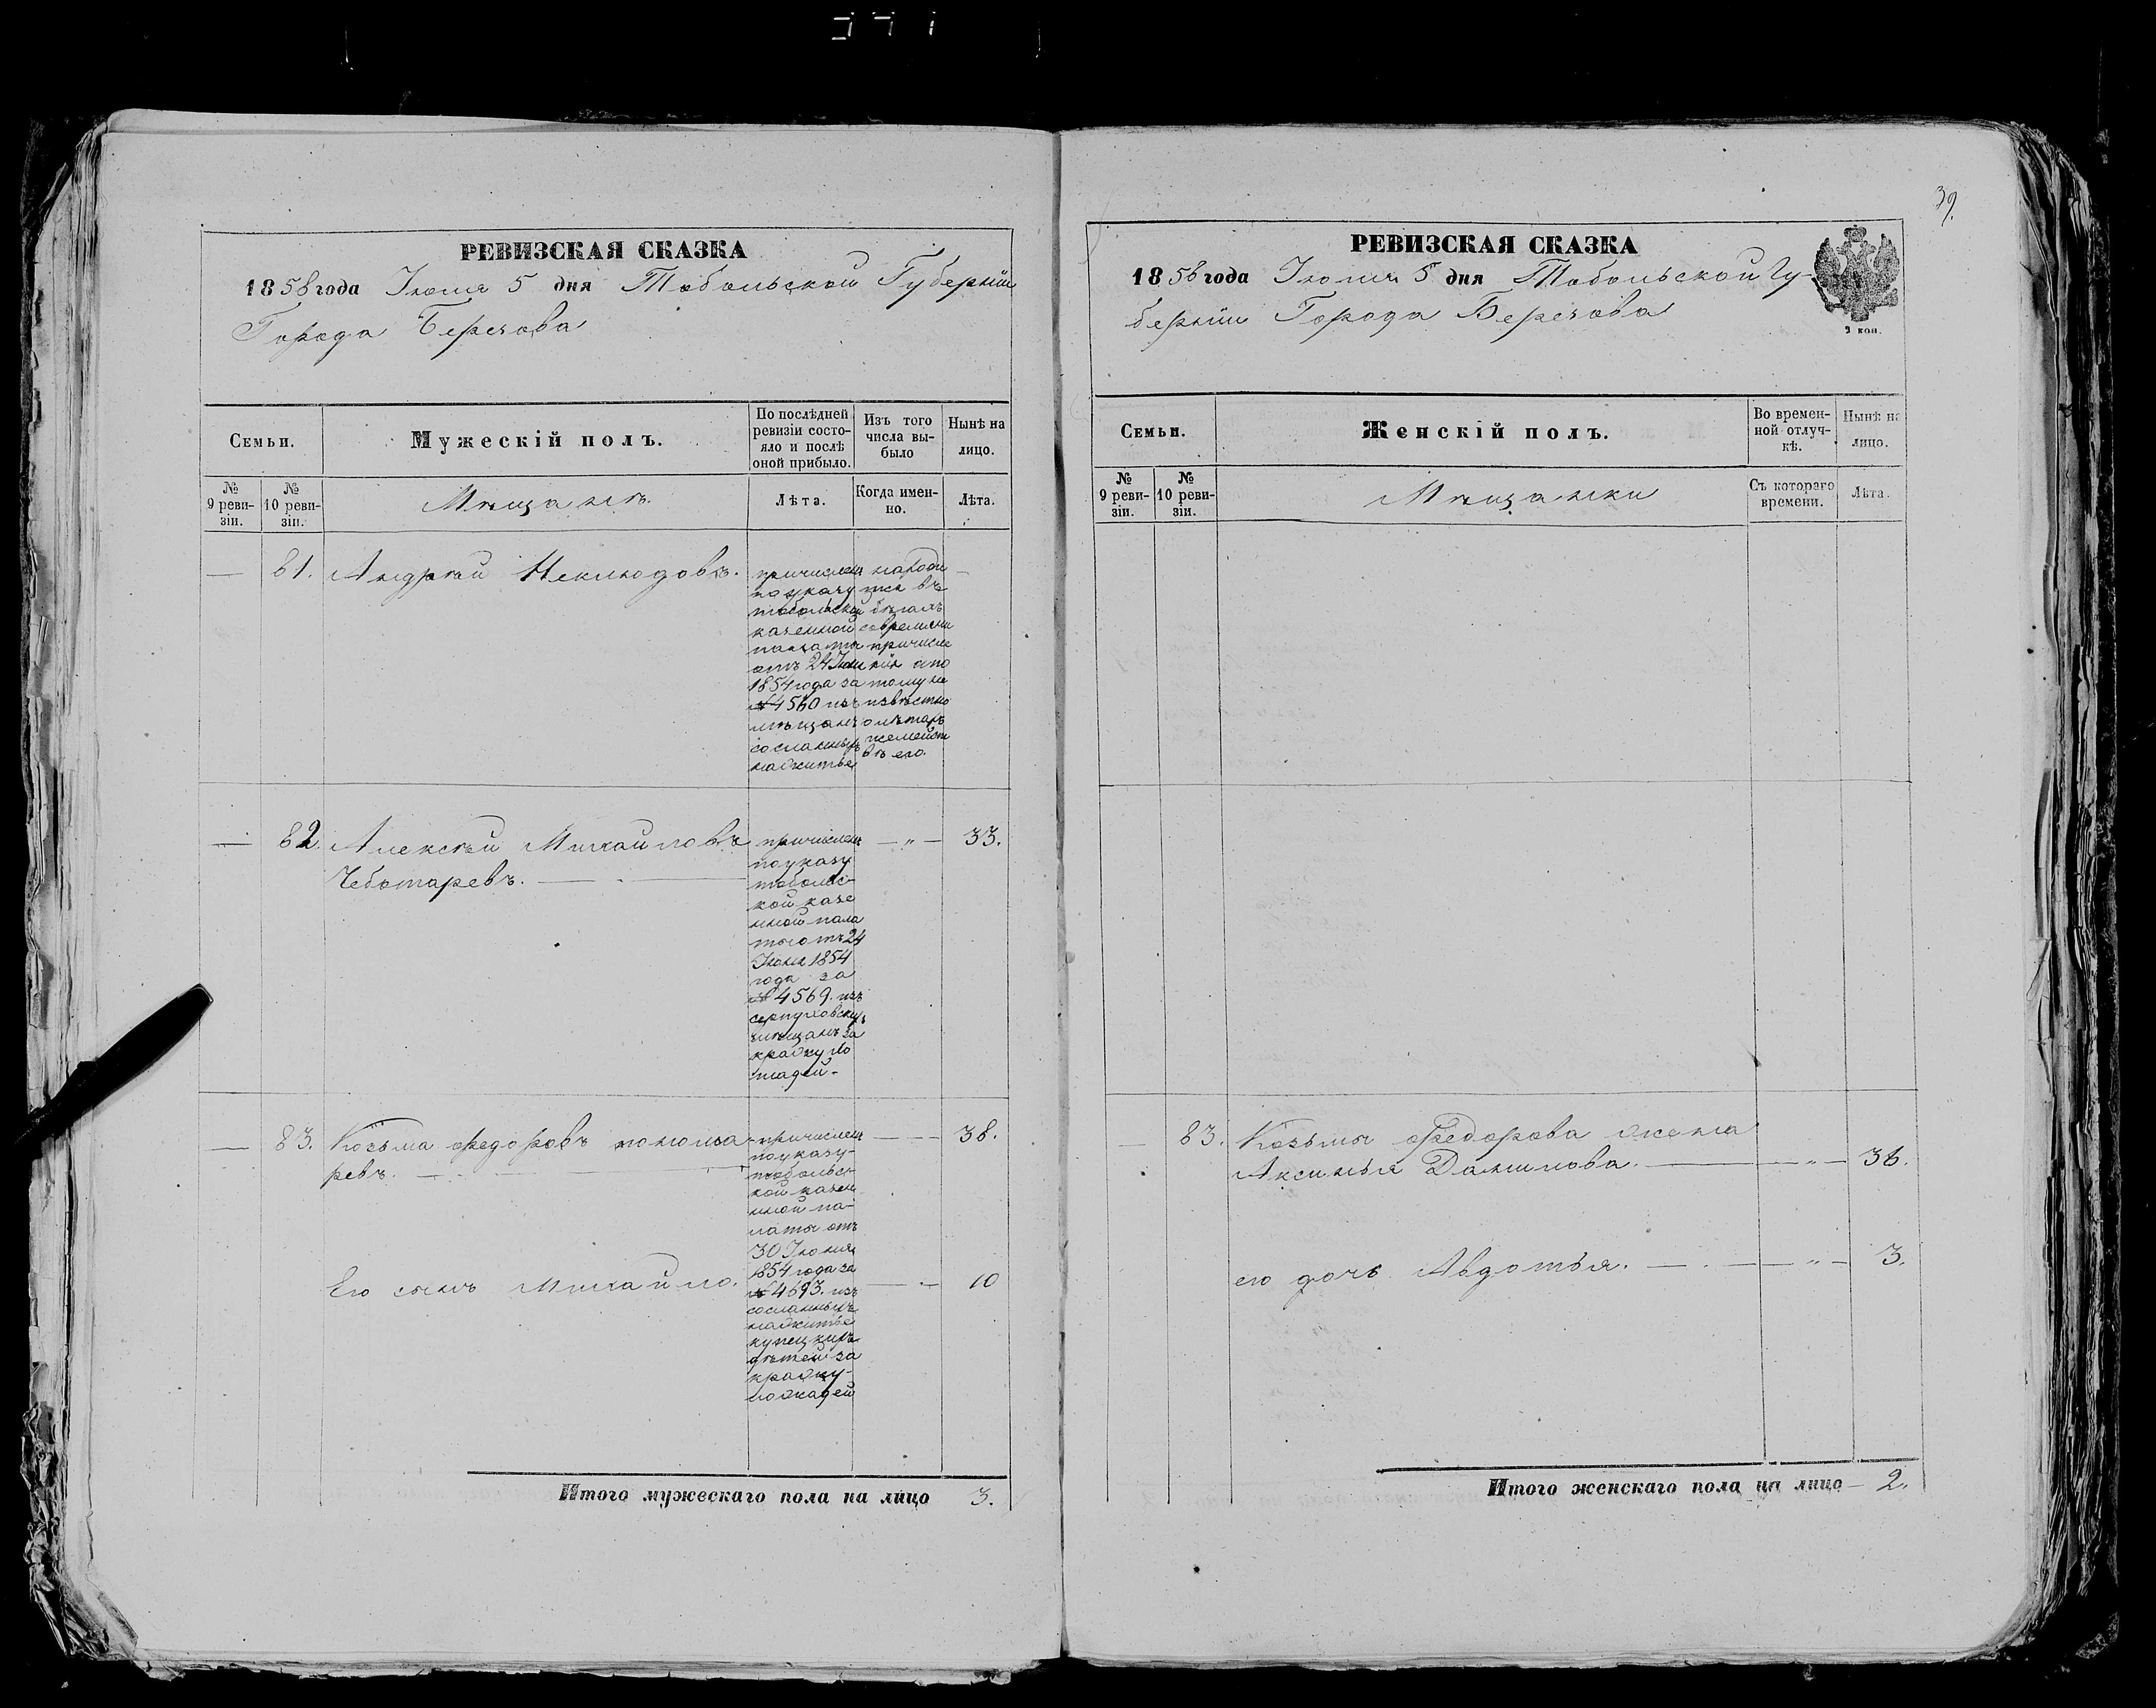 39.
РЕВИЗСКАЯ СКАЗКА
1858 года Июня 5 дня Тобольской Губерніи
Города Березова
Семьи.
Мужескій полъ.
По послѣдней
ревизіи состо-
яло и послѣ
оной прибыло.
Изъ того
числа вы-
было
Нынѣ на
лицо.
№
9 реви-
зіи.
№
10 реви-
зіи.
Мѣщанъ.
Лѣта.
Когда имен-
но.
Лѣта.
— 81. Андрей Неклюдовъ.
причисленъ
по указу
тобольской
казенной
палаты
отъ 24 Июня
1854 года за
№ 4560 изъ
мѣщанъ
сосланныхъ
на житье
находи
тся въ
бѣгахъ
современи
причисле
нія а по
тому не
извѣстно
о лѣтахъ
и семейст
вѣ его.
—
— 82. Алексѣй Михайловъ
Чеботаревъ.
причисленъ
по указу
тоболь-
кой казе
нной пала
ты отъ 24
Июня 1854
года за
№ 4569. изъ
серпуховскихъ
мѣщанъ за
кражу ло
шадей.
— „ — 33.
— 83. Козьма Федоровъ пономаревъ.
причисленъ
по указу
тобольс-
кой казен
нной па-
латы отъ
30 Июня
1854 года за
№ 4693. изъ
сосланныхъ
на житье
купецкихъ
дѣтей за
кражу
лошадей
— 38.
Его сынъ Михайло. — 10
Итого мужескаго пола на лицо 3.
РЕВИЗСКАЯ СКАЗКА
1858 года Июня 5 дня Тобольской Гу-
берніи Города Березова
2 коп.
Семьи.
Женскій полъ.
Во времен-
ной отлуч-
кѣ.
Нынѣ на
лицо.
№
9 реви-
зіи.
№
10 реви-
зіи.
Мѣщанки
Съ котораго
времени.
Лѣта.
— 83. Козьмы Федорова жена
Аксинья Данилова. — „ — 36.
его дочь Авдотья. — „ — 3.
Итого женскаго пола на лицо — 2.